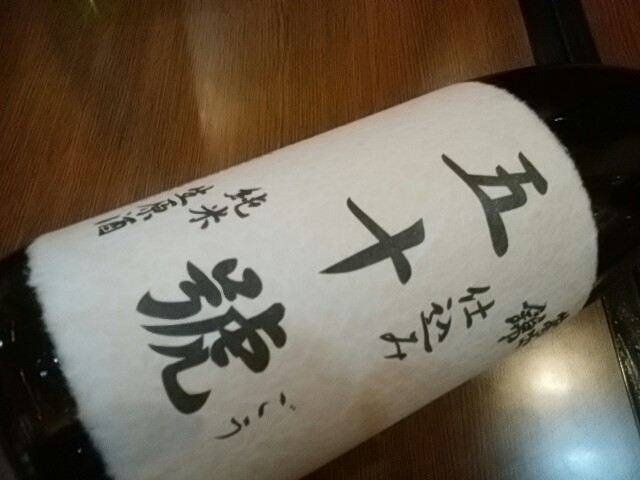 五十號
ごう
錦
仕込み
純米
生原酒